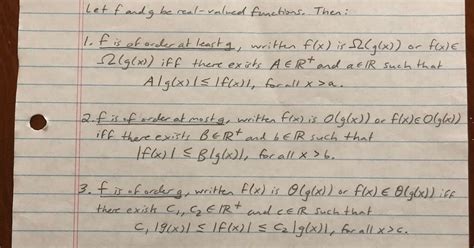 Let f and g be real-valued functions. Then:
1. f is of order at least g, written f(x) is Ω(g(x)) or f(x)∈
Ω(g(x)) iff there exists A∈ℝ⁺ and a∈ℝ such that
A|g(x)| ≤ |f(x)|, for all x>a.
2. f is of order at most g, written f(x) is O(g(x)) or f(x)∈O(g(x))
iff there exists B∈ℝ⁺ and b∈ℝ such that
|f(x)| ≤ B|g(x)|, for all x>b.
3. f is of order g, written f(x) is Θ(g(x)) or f(x)∈Θ(g(x)) iff
there exists C₁, C₂∈ℝ⁺ and c∈ℝ such that
C₁|g(x)| ≤ |f(x)| ≤ C₂|g(x)|, for all x>c.